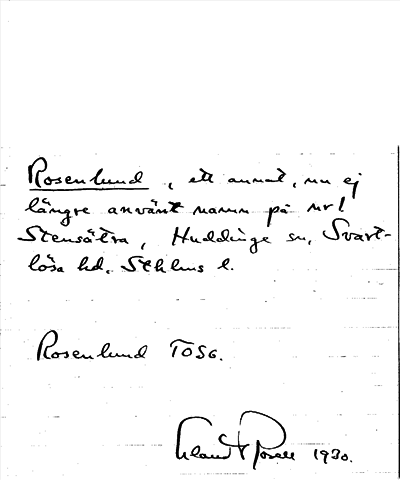 Rosenlund, ett annat, nu ej
längre använt namn på nr 1
Stensätra, Huddinge sn, Svart-
lösa hd, Sthlms l.
Rosenlund TOSG.
1930.